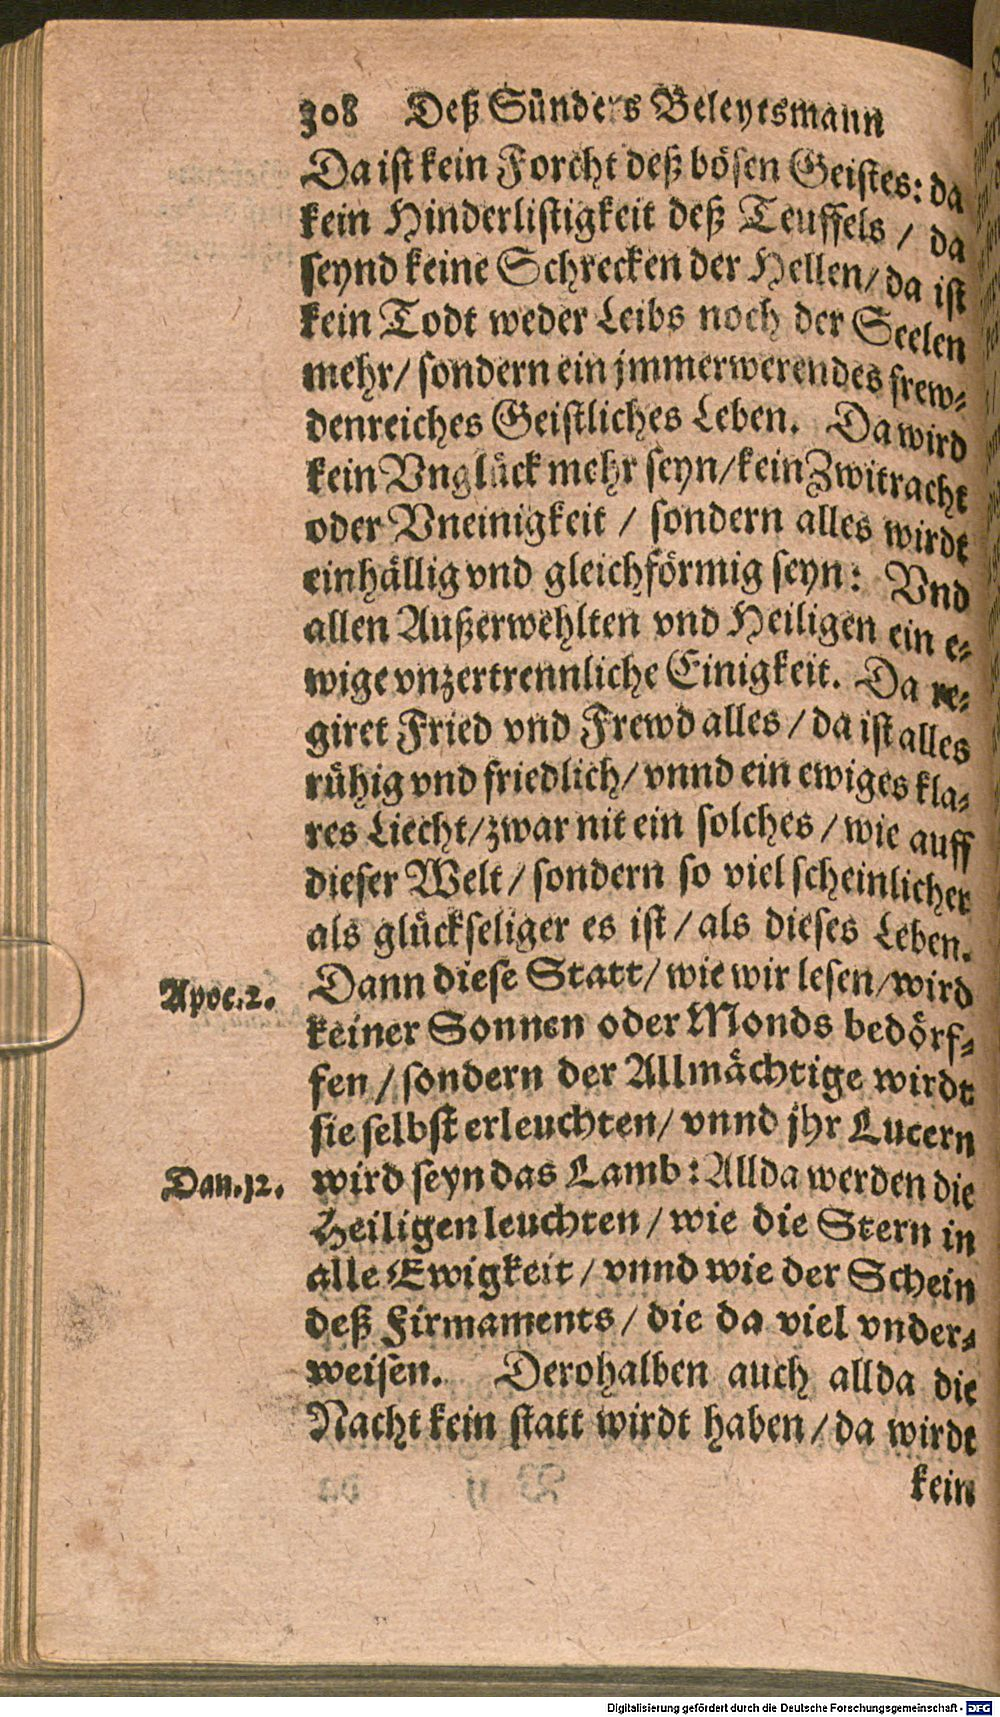 308 Deß Sünders Beleytsmann
Da ist kein Forcht deß bösen Geistes: da
kein Hinderlistigkeit deß Teuffels / da
seynd keine Schrecken der Hellen / da ist
kein Todt weder Leibs noch der Seelen
mehr / sondern ein jmmerwerendes frew-
denreiches Geistliches Leben. Da wird
kein Vnglück mehr seyn / kein Zwitracht
oder Vneinigkeit / sondern alles wirdt
einhällig vnd gleichförmig seyn: Vnd
allen Außerwehlten vnd Heiligen ein e-
wige vnzertrennliche Einigkeit. Da re-
giret Fried vnd Frewd alles / da ist alles
rühig vnd friedlich / vnnd ein ewiges kla-
res Liecht / zwar nit ein solches / wie auff
dieser Welt / sondern so viel scheinlicher
als glückseliger es ist / als dieses Leben.
Dann diese Statt / wie wir lesen / wird
Apoc. 2.
keiner Sonnen oder Monds bedörf-
fen / sondern der Allmächtige wirdt
sie selbst erleuchten / vnnd jhr Lucern
wird seyn das Lamb: Allda werden die
Dan. 12.
Heiligen leuchten / wie die Stern in
alle Ewigkeit / vnnd wie der Schein
deß Firmaments / die da viel vnder-
weisen. Derohalben auch allda die
Nacht kein statt wirdt haben / da wirdt
kein
Digitalisierung gefördert durch die Deutsche Forschungsgemeinschaft - DFG